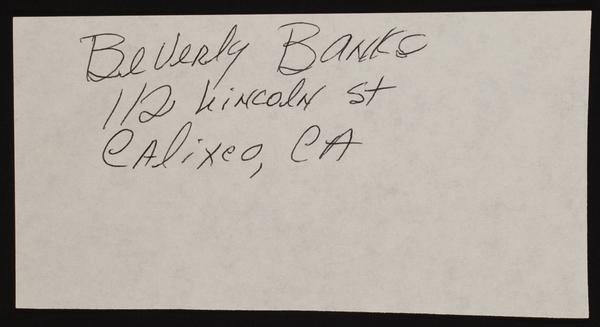 Beverly Banks
112 Lincoln St
Calixco, CA